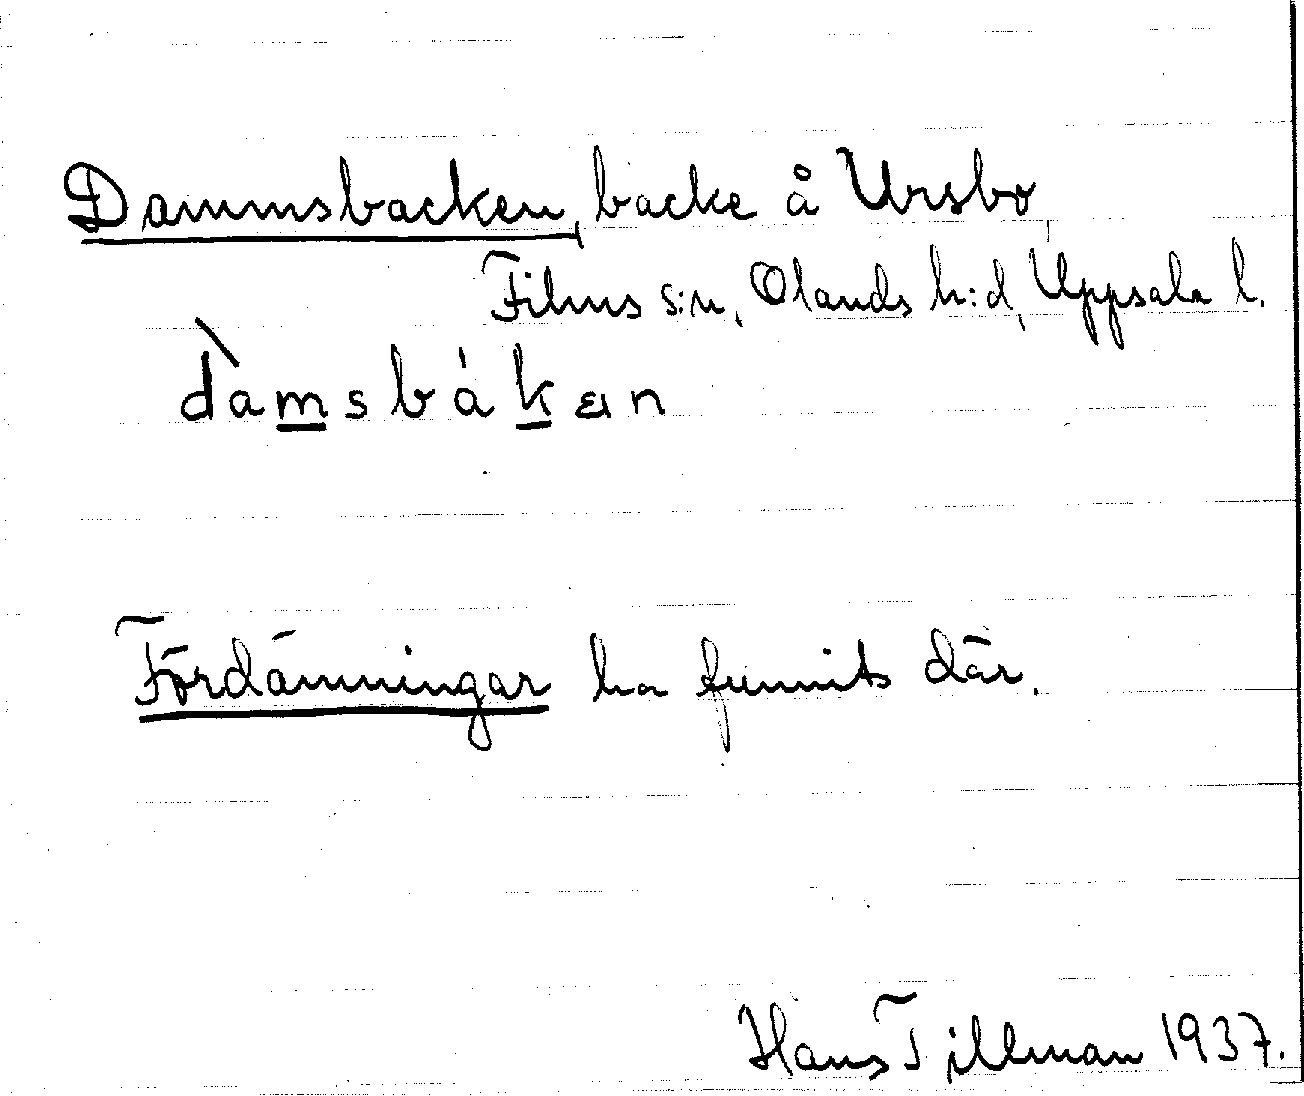 Dammsbacken, backe å Ursbo,
Films s:n, Olands h:d, Uppsala l.
dàmsbákɛn
Fördämningar ha funnits där.
Hans Tillman 1937.